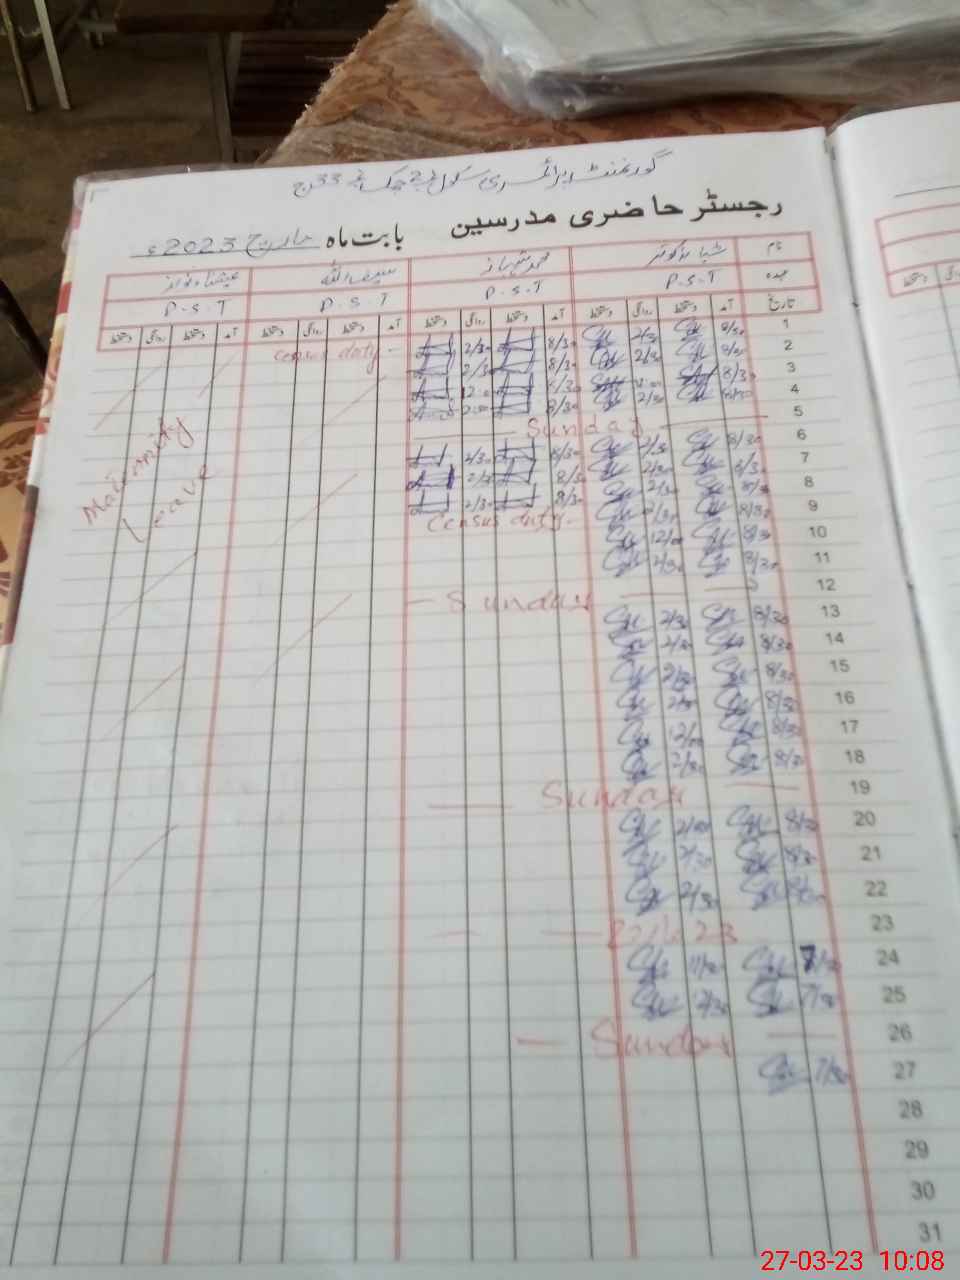 گورنمنٹ پرائمری سکول نمبر 2 چک نمبر 33 ج
رجسٹر حاضری مدرسین بابت ماہ مارچ 2023ء
نام شہباز محمد شہباز سیف اللہ
عہدہ P.S.T P.S.T P.S.T P.S.T
تاریخ آمد دستخط روانگی دستخط آمد دستخط روانگی دستخط آمد دستخط روانگی دستخط آمد دستخط روانگی دستخط
1 8/30 2/30 8/30 2/30 Census duty
2 8/30 2/30 8/30 2/30
3 8/30 12:00
4 8/30 2/30 8/30 2:30
5 Sunday
6 8/30 2/30 8/30 2/30
7 8/30 2/30 8/30 2/30
8 8/30 2/30 8/30 2/30
9 8/30 2/30 Census duty
10 8/30 12/00
11 8/30 2/30
12 Sunday
13 8/30 2/30
14 8/30 2/30
15 8/30 2/30
16 8/30 2/30
17 8/30 12/00
18 8/30 2/30
19 Sunday
20 8/30
21 8/30 2/30
22 2/30
23
24 7/30 11/30
25 7/30 12/30
26 Sunday
27 7/30
28
29
30
31
Maternity
Leave
27-03-23 10:08